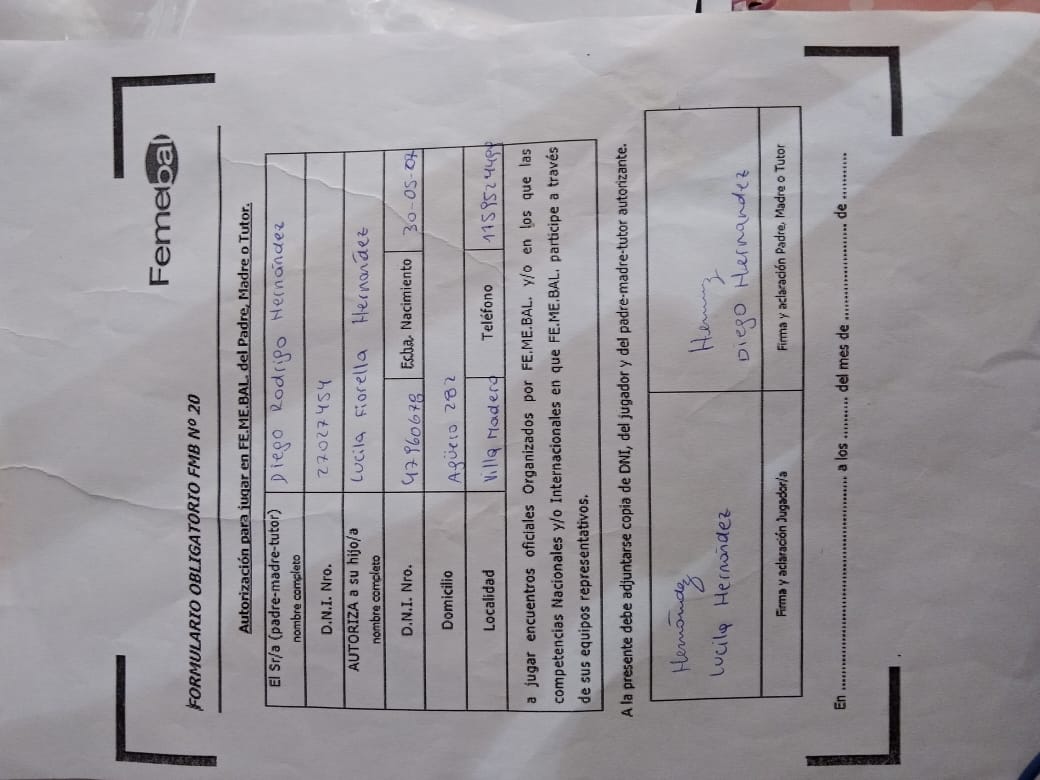 Femebal
FORMULARIO OBLIGATORIO FMB Nº 20
Autorización para jugar en FE.ME.BAL. del Padre, Madre o Tutor.
El Sr/a (padre-madre-tutor) Diego Rodrigo Hernández
nombre completo
D.N.I. Nro. 27027454
AUTORIZA a su hijo/a Lucila Fiorella Hernández
nombre completo
D.N.I. Nro. 47960678 Fcha. Nacimiento 30-05-07
Domicilio Agüero 282
Localidad Villa Madero Teléfono
a jugar encuentros oficiales Organizados por FE.ME.BAL. y/o en los que las
competencias Nacionales y/o Internacionales en que FE.ME.BAL. participe a través
de sus equipos representativos.
A la presente debe adjuntarse copia de DNI, del jugador y del padre-madre-tutor autorizante.
Hernández
Lucila Hernández
Diego Hernandez
Firma y aclaración Jugador/a Firma y aclaración Padre, Madre o Tutor
En ........................................ a los .......... del mes de .................... de ..........